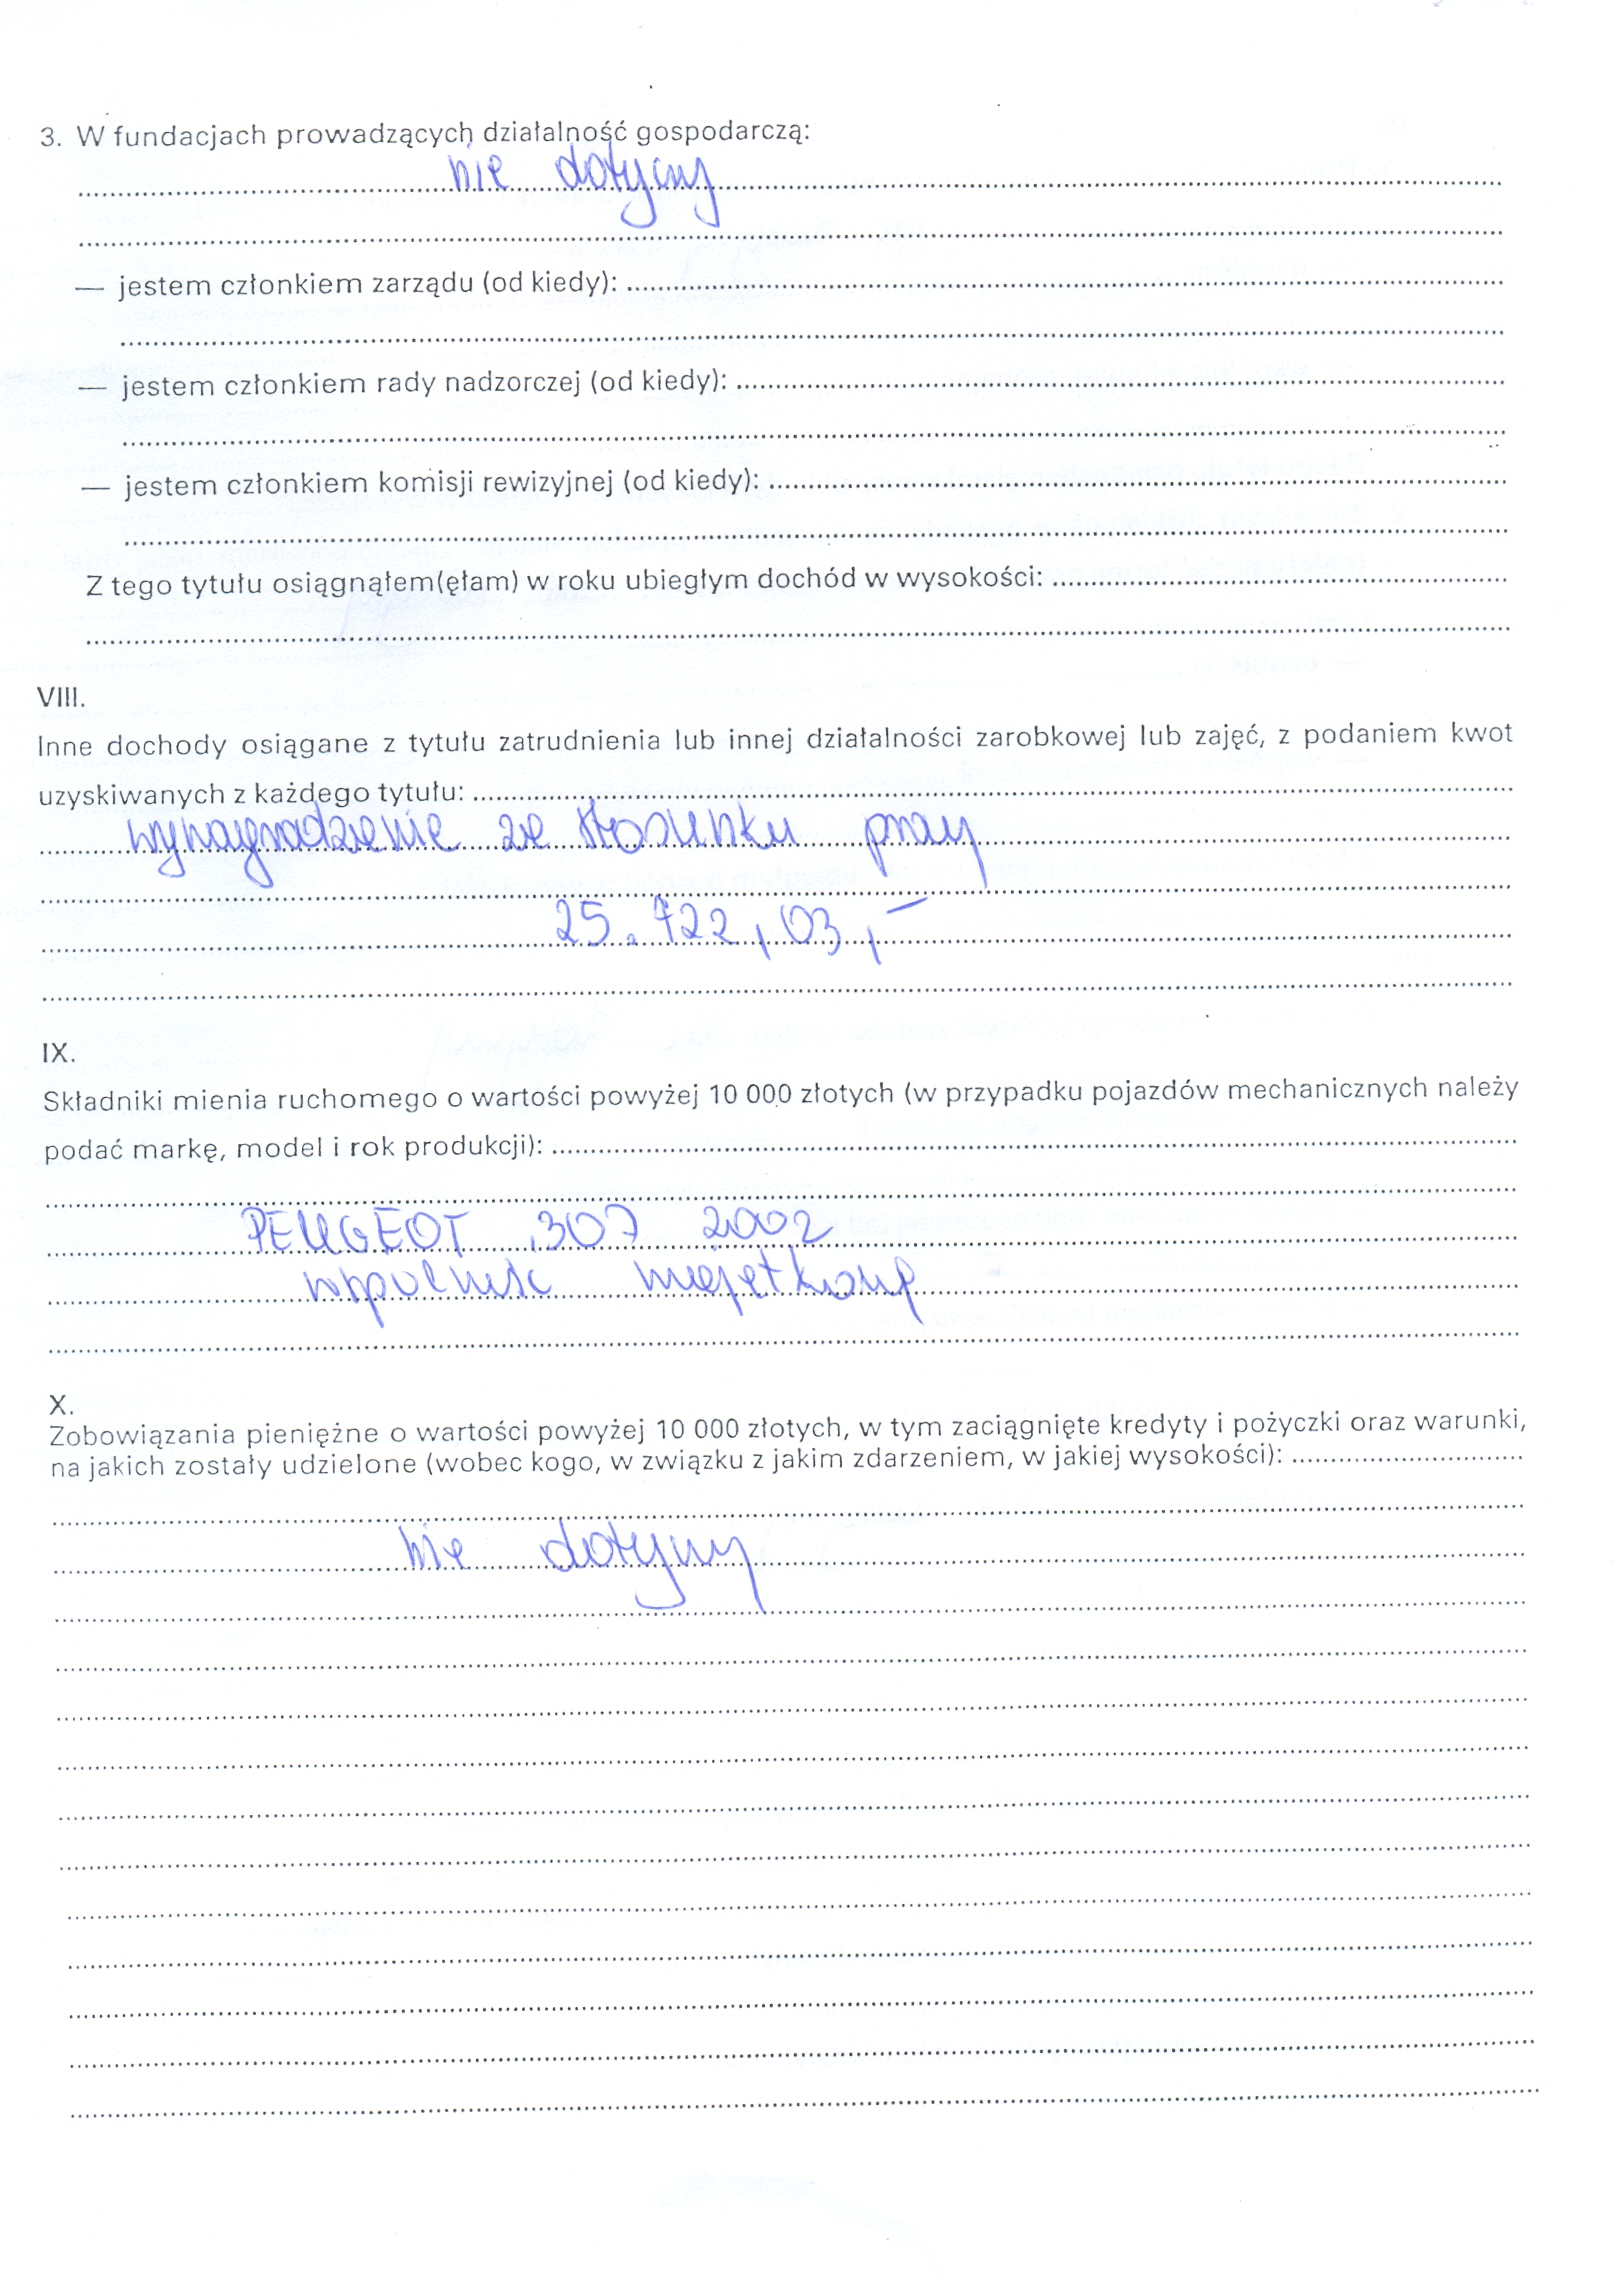 3. W fundacjach prowadzących działalność gospodarczą:
nie dotyczy
— jestem członkiem zarządu (od kiedy):
— jestem członkiem rady nadzorczej (od kiedy):
— jestem członkiem komisji rewizyjnej (od kiedy):
Z tego tytułu osiągnąłem(ęłam) w roku ubiegłym dochód w wysokości:
VIII.
Inne dochody osiągane z tytułu zatrudnienia lub innej działalności zarobkowej lub zajęć, z podaniem kwot
uzyskiwanych z każdego tytułu:
wynagrodzenie ze stosunku pracy
25.722,03,-
IX.
Składniki mienia ruchomego o wartości powyżej 10 000 złotych (w przypadku pojazdów mechanicznych należy
podać markę, model i rok produkcji):
PEUGEOT 307 2002
wspólność majątkowa
X.
Zobowiązania pieniężne o wartości powyżej 10 000 złotych, w tym zaciągnięte kredyty i pożyczki oraz warunki,
na jakich zostały udzielone (wobec kogo, w związku z jakim zdarzeniem, w jakiej wysokości):
nie dotyczy